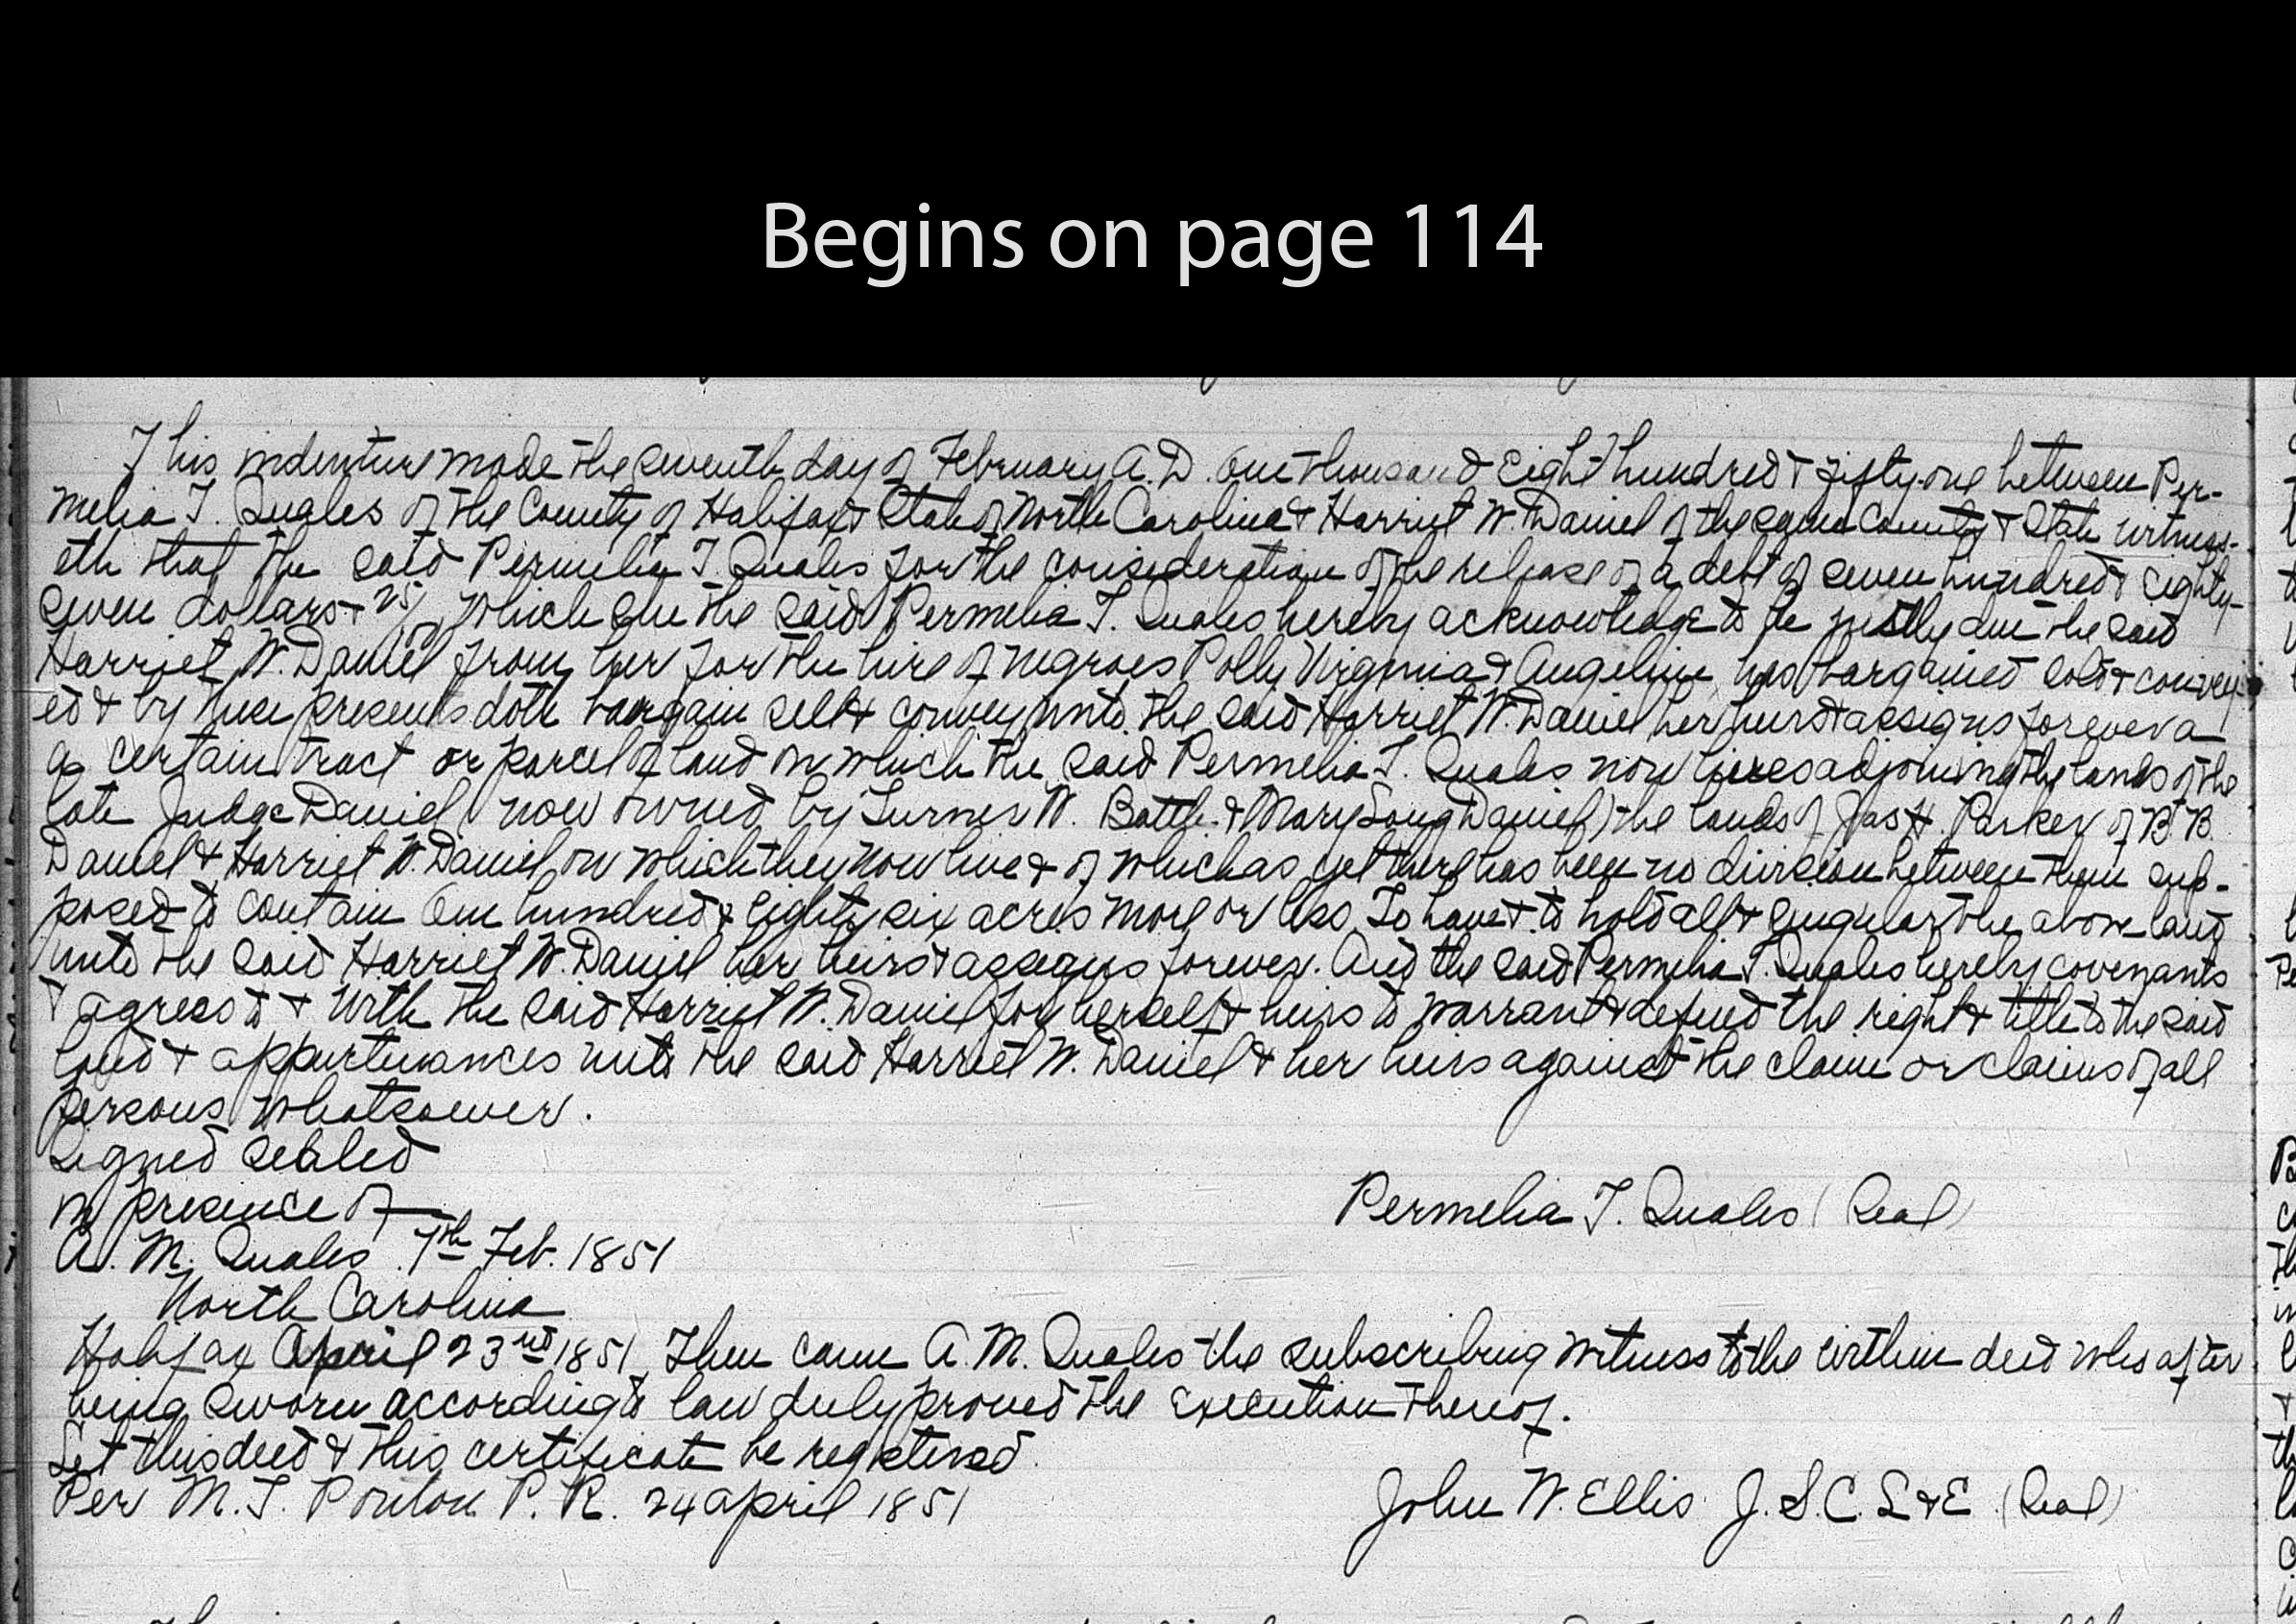 Begins on page 114
This indenture made the seventh day of February A.D. One thousand Eight hundred & fifty one between Per-
melia T. Quales of the County of Halifax & State of North Carolina & Harriet W. Daniel of the same County & State witness-
eth that the said Permelia T. Quales for the consideration of the release of a debt of seven hundred & Eighty-
seven dollars & 25/ which she the said Permelia T. Quales hereby acknowledge to be justly due the said
Harriet W. Daniel from her for the hire of negroes Polly Virginia & Angeline has bargained sold & convey-
ed & by these presents doth bargain sell & convey unto the said Harriet W. Daniel her heirs & assigns forever a
a certain tract or parcel of land on which the said Permelia T. Quales now lives adjoining the lands of the
late Judge Daniel (now owned by Turner W. Battle & Mary Long Daniel) the lands of Jas H. Parker of B. B.
Daniel & Harriet W. Daniel on which they now live & of which as yet there has been no division between them sup-
posed to contain One hundred & eighty six acres more or less To have & to hold all & singular the above land
unto the said Harriet W. Daniel her heirs & assigns forever. And the said Permelia T. Quales hereby covenants
& agrees to & with the said Harriet W. Daniel for herself & heirs to warrant & defend the right & title to the said
land & appurtenances unto the said Harriet W. Daniel & her heirs against the claim or claims of all
persons whatsoever.
Signed sealed
in presence of —
Permelia T. Quales (Seal)
A. M. Quales 7th Feb. 1851
North Carolina
Halifax April 23rd 1851 Then came A. M. Quales the subscribing witness to the within deed who after
being sworn according to law duly proved the execution thereof.
Let this deed & this certificate be registered
Per M. T. Ponton P. R. 24 april 1851
John W. Ellis J. S. C. L & E (Seal)